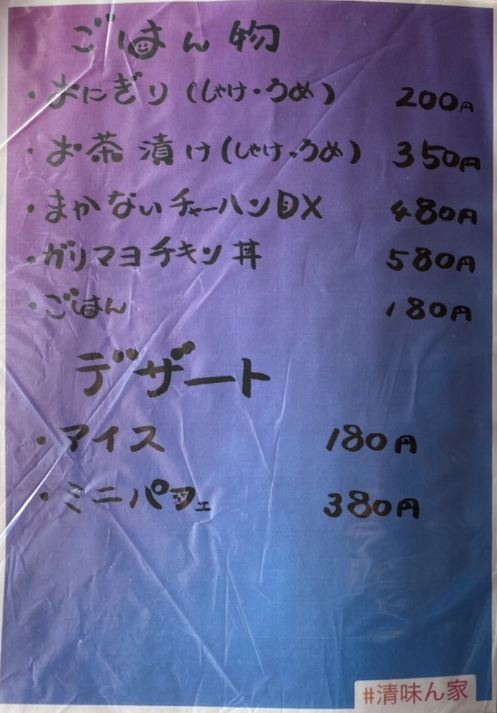 ごはん物
・おにぎり（しゃけ・うめ） 200円
・お茶漬け（しゃけ・うめ） 350円
・まかないチャーハンDX 480円
・ガリマヨチキン丼 580円
・ごはん 180円
デザート
・アイス 180円
・ミニパフェ 380円
#清味ん家